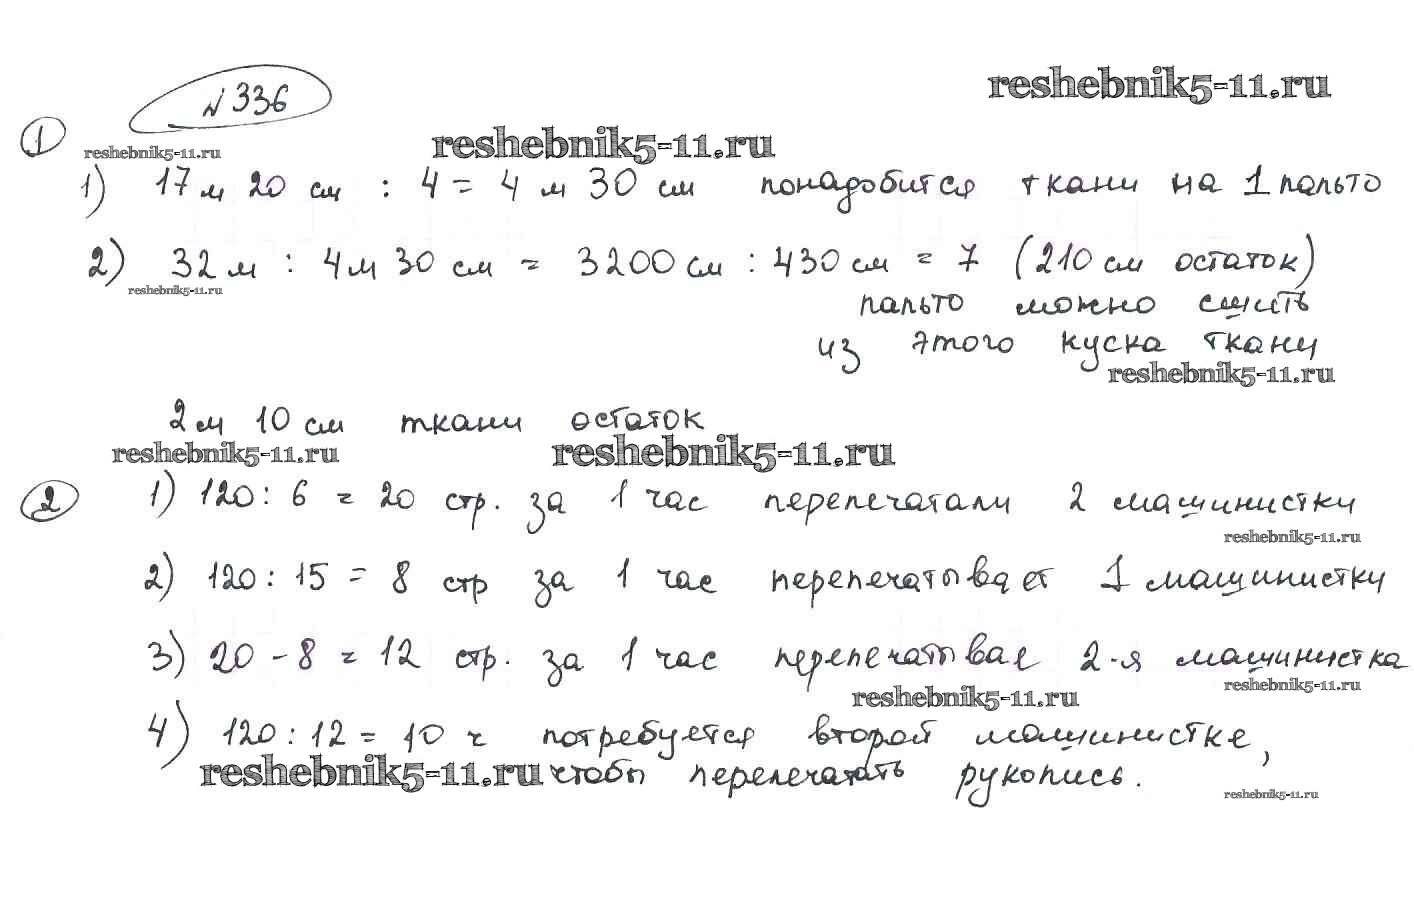 №336
reshebnik5-11.ru
1
reshebnik5-11.ru
reshebnik5-11.ru
1) 17 м 20 см : 4 = 4 м 30 см понадобится ткани на 1 пальто
2) 32 м : 4 м 30 см = 3200 см : 430 см = 7 (210 см остаток)
reshebnik5-11.ru
пальто можно сшить
из этого куска ткани
reshebnik5-11.ru
2 м 10 см ткани остаток
reshebnik5-11.ru
reshebnik5-11.ru
2
1) 120 : 6 = 20 стр. за 1 час перепечатали 2 машинистки
reshebnik5-11.ru
2) 120 : 15 = 8 стр за 1 час перепечатывает 1 машинистку
3) 20 - 8 = 12 стр. за 1 час перепечатывае 2-я машинистка
reshebnik5-11.ru
reshebnik5-11.ru
4) 120 : 12 = 10 ч потребуется второй машинистке,
reshebnik5-11.ru чтобы перепечатать рукопись.
reshebnik5-11.ru